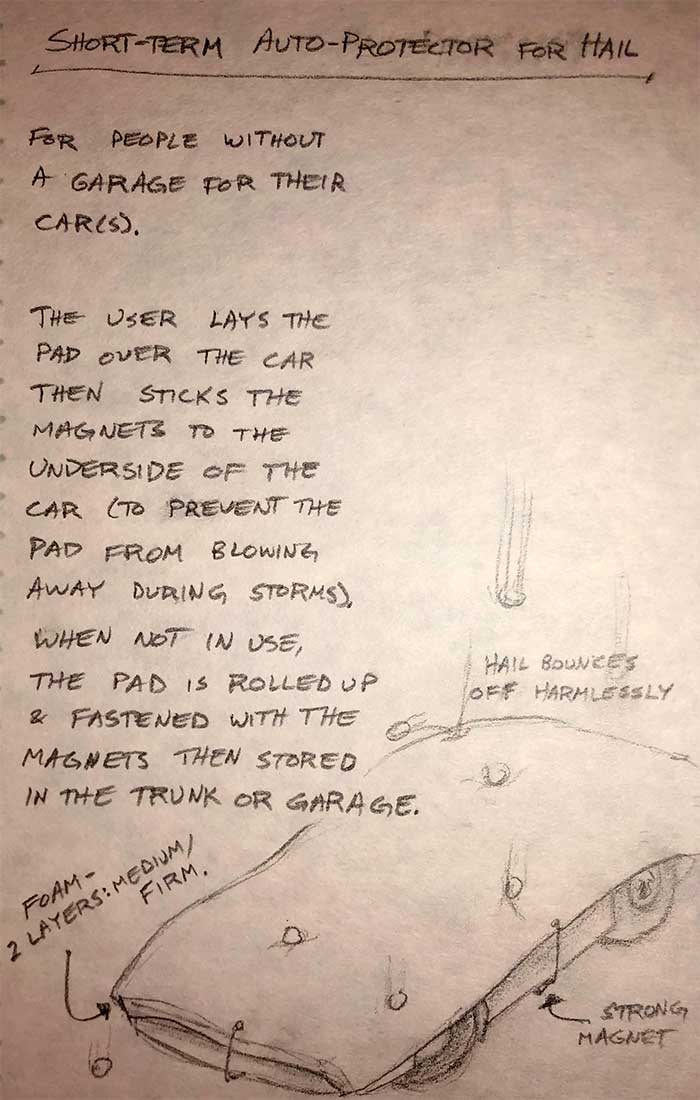 SHORT-TERM AUTO-PROTECTOR FOR HAIL
FOR PEOPLE WITHOUT
A GARAGE FOR THEIR
CAR(S).
THE USER LAYS THE
PAD OVER THE CAR
THEN STICKS THE
MAGNETS TO THE
UNDERSIDE OF THE
CAR (TO PREVENT THE
PAD FROM BLOWING
AWAY DURING STORMS).
WHEN NOT IN USE,
THE PAD IS ROLLED UP
& FASTENED WITH THE
MAGNETS THEN STORED
IN THE TRUNK OR GARAGE.
HAIL BOUNCES
OFF HARMLESSLY
FOAM-
2 LAYERS: MEDIUM/
FIRM.
STRONG
MAGNET